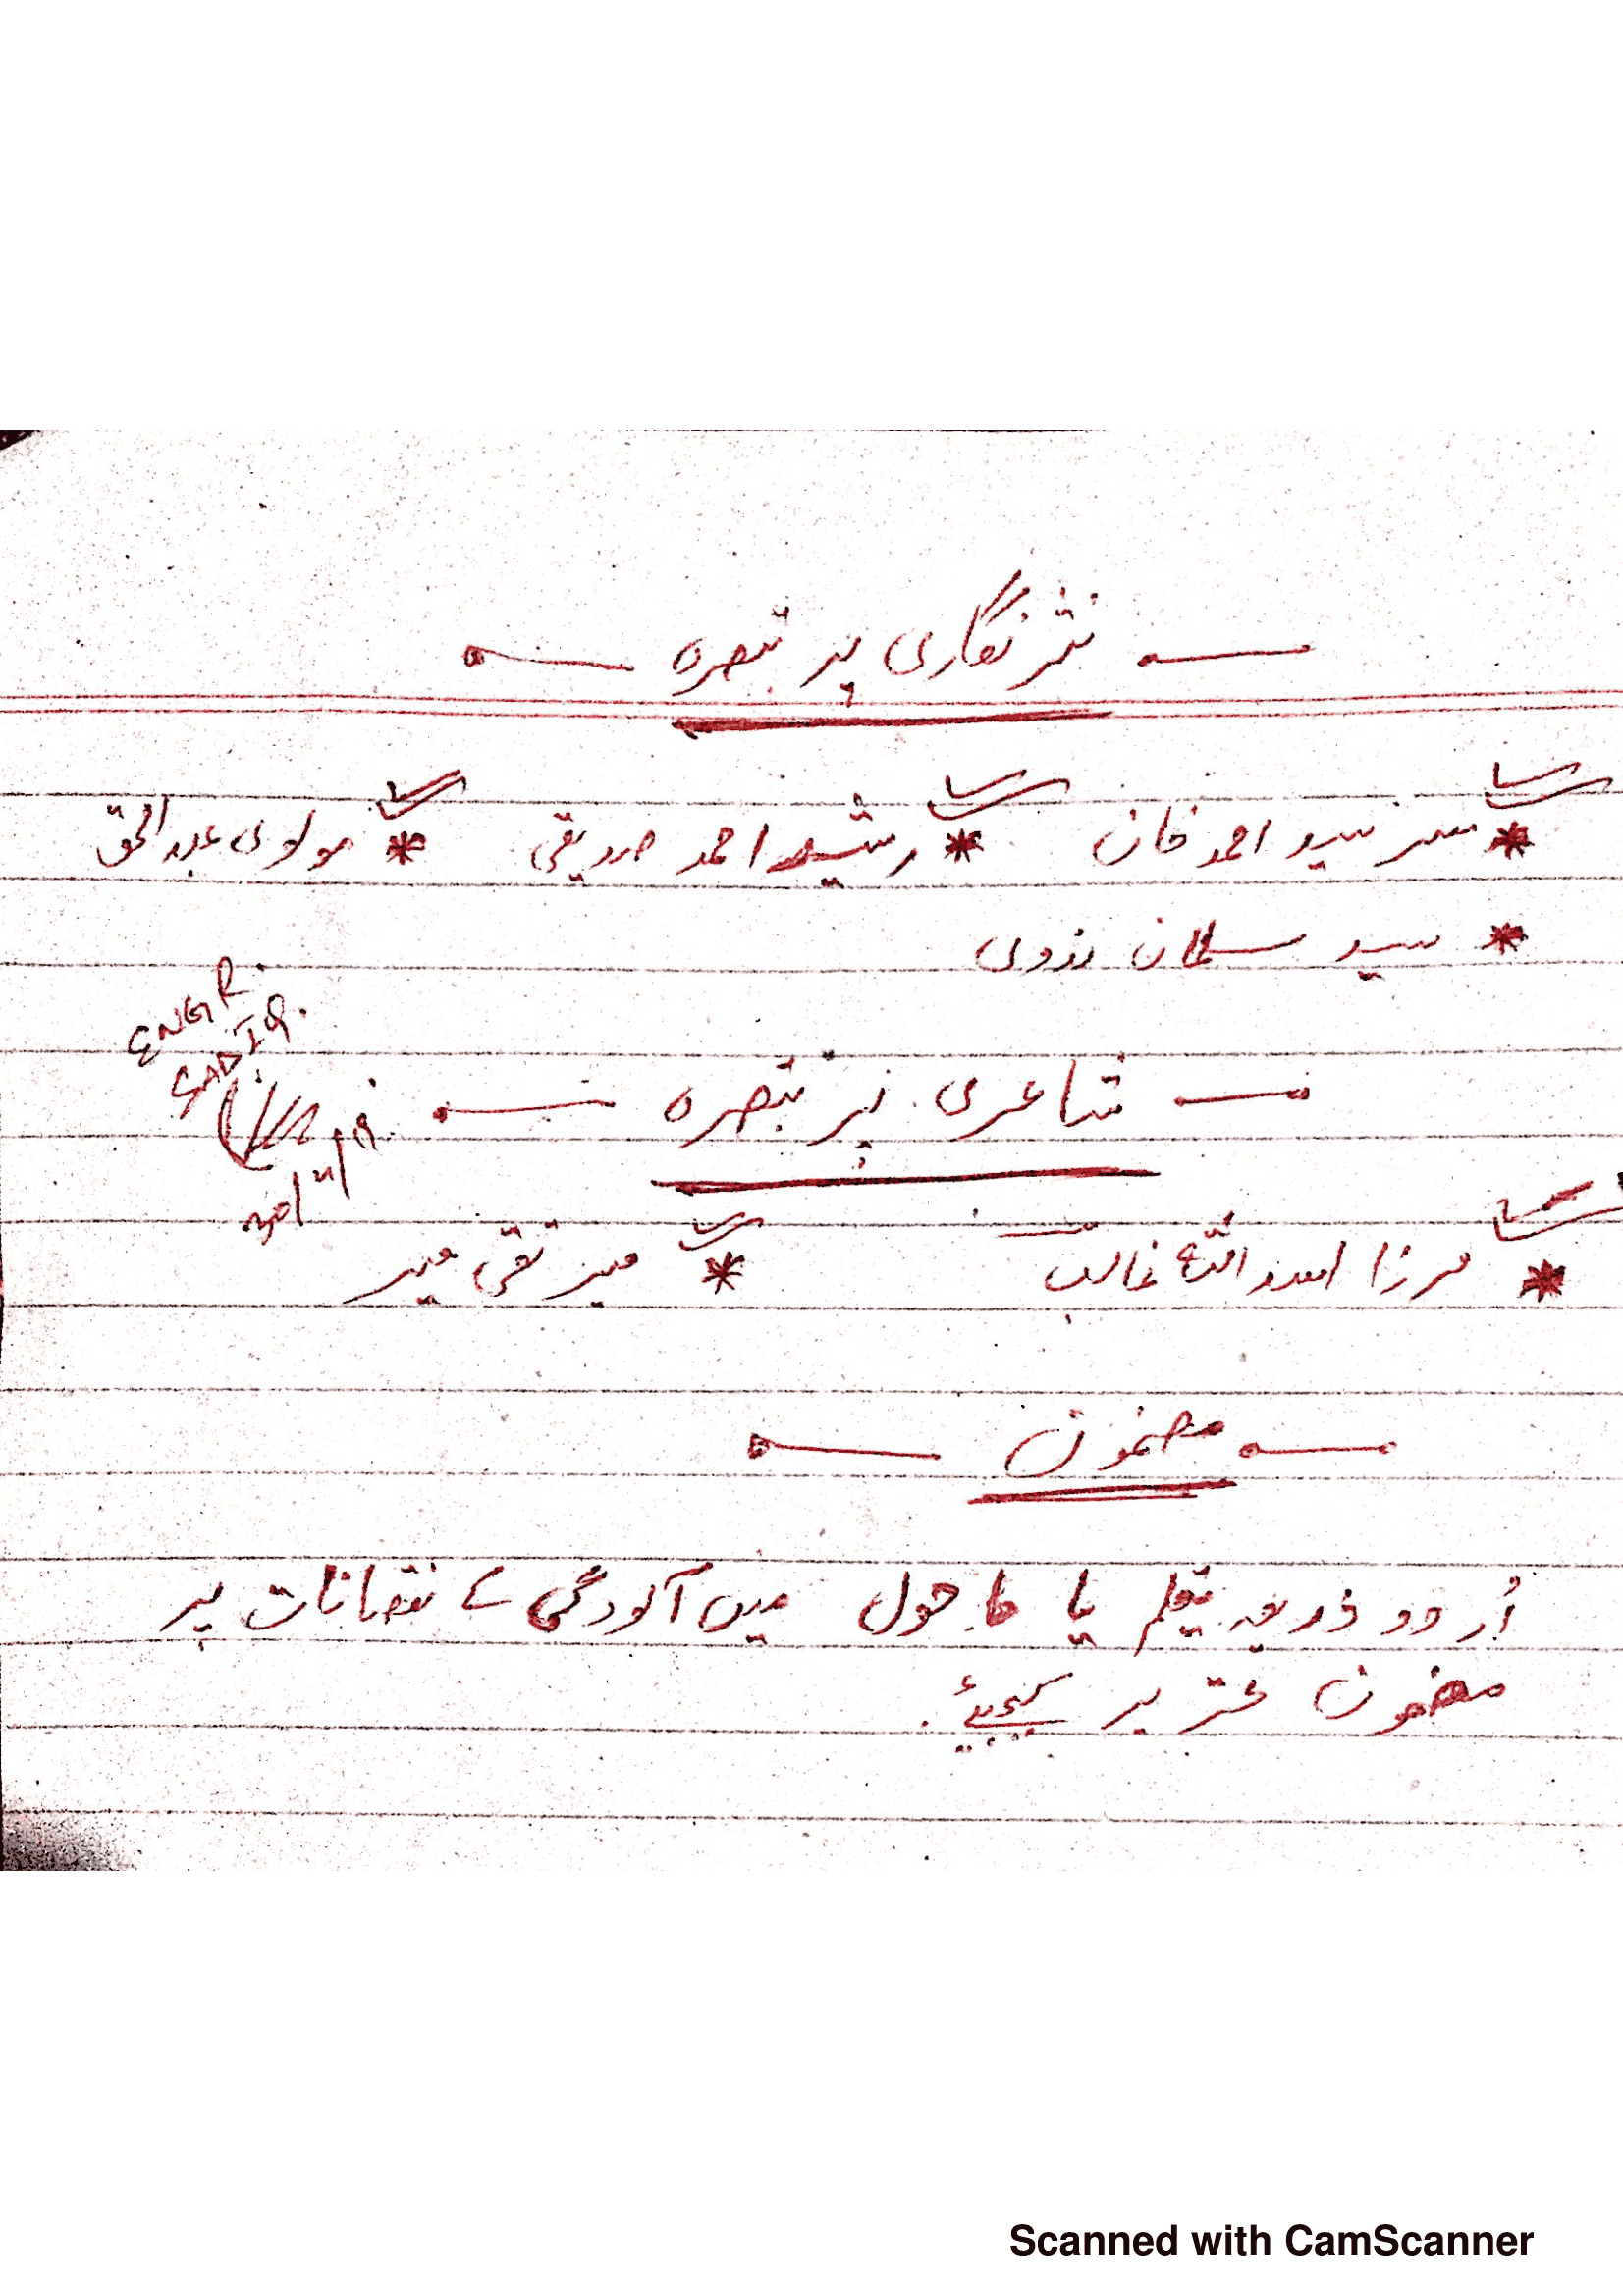 نثر نگاری پر تبصرہ
* سر سید احمد خان * رشید احمد صدیقی * مولوی عبدالحق
* سید سلمان ندوی
ENGR.
SADIQ.
شاعری پر تبصرہ
* مرزا اسد اللہ غالب * میر تقی میر
مضمون
اُردو ذریعہ تعلیم یا ماحول میں آلودگی کے نقصانات پر
مضمون تحریر کیجیئے.
Scanned with CamScanner